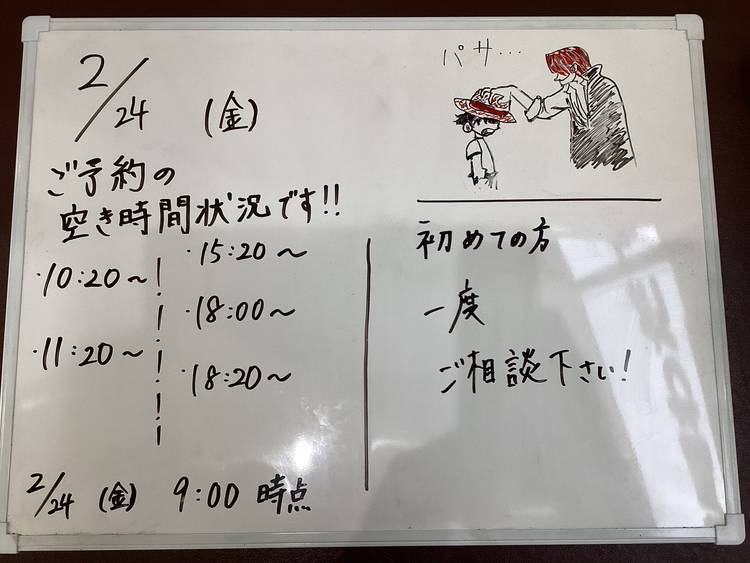 2/24 (金)
ご予約の
空き時間状況です!!
・10:20~
・11:20~
・15:20~
・18:00~
・18:20~
2/24 (金) 9:00 時点
パサ...
初めての方
一度
ご相談下さい!